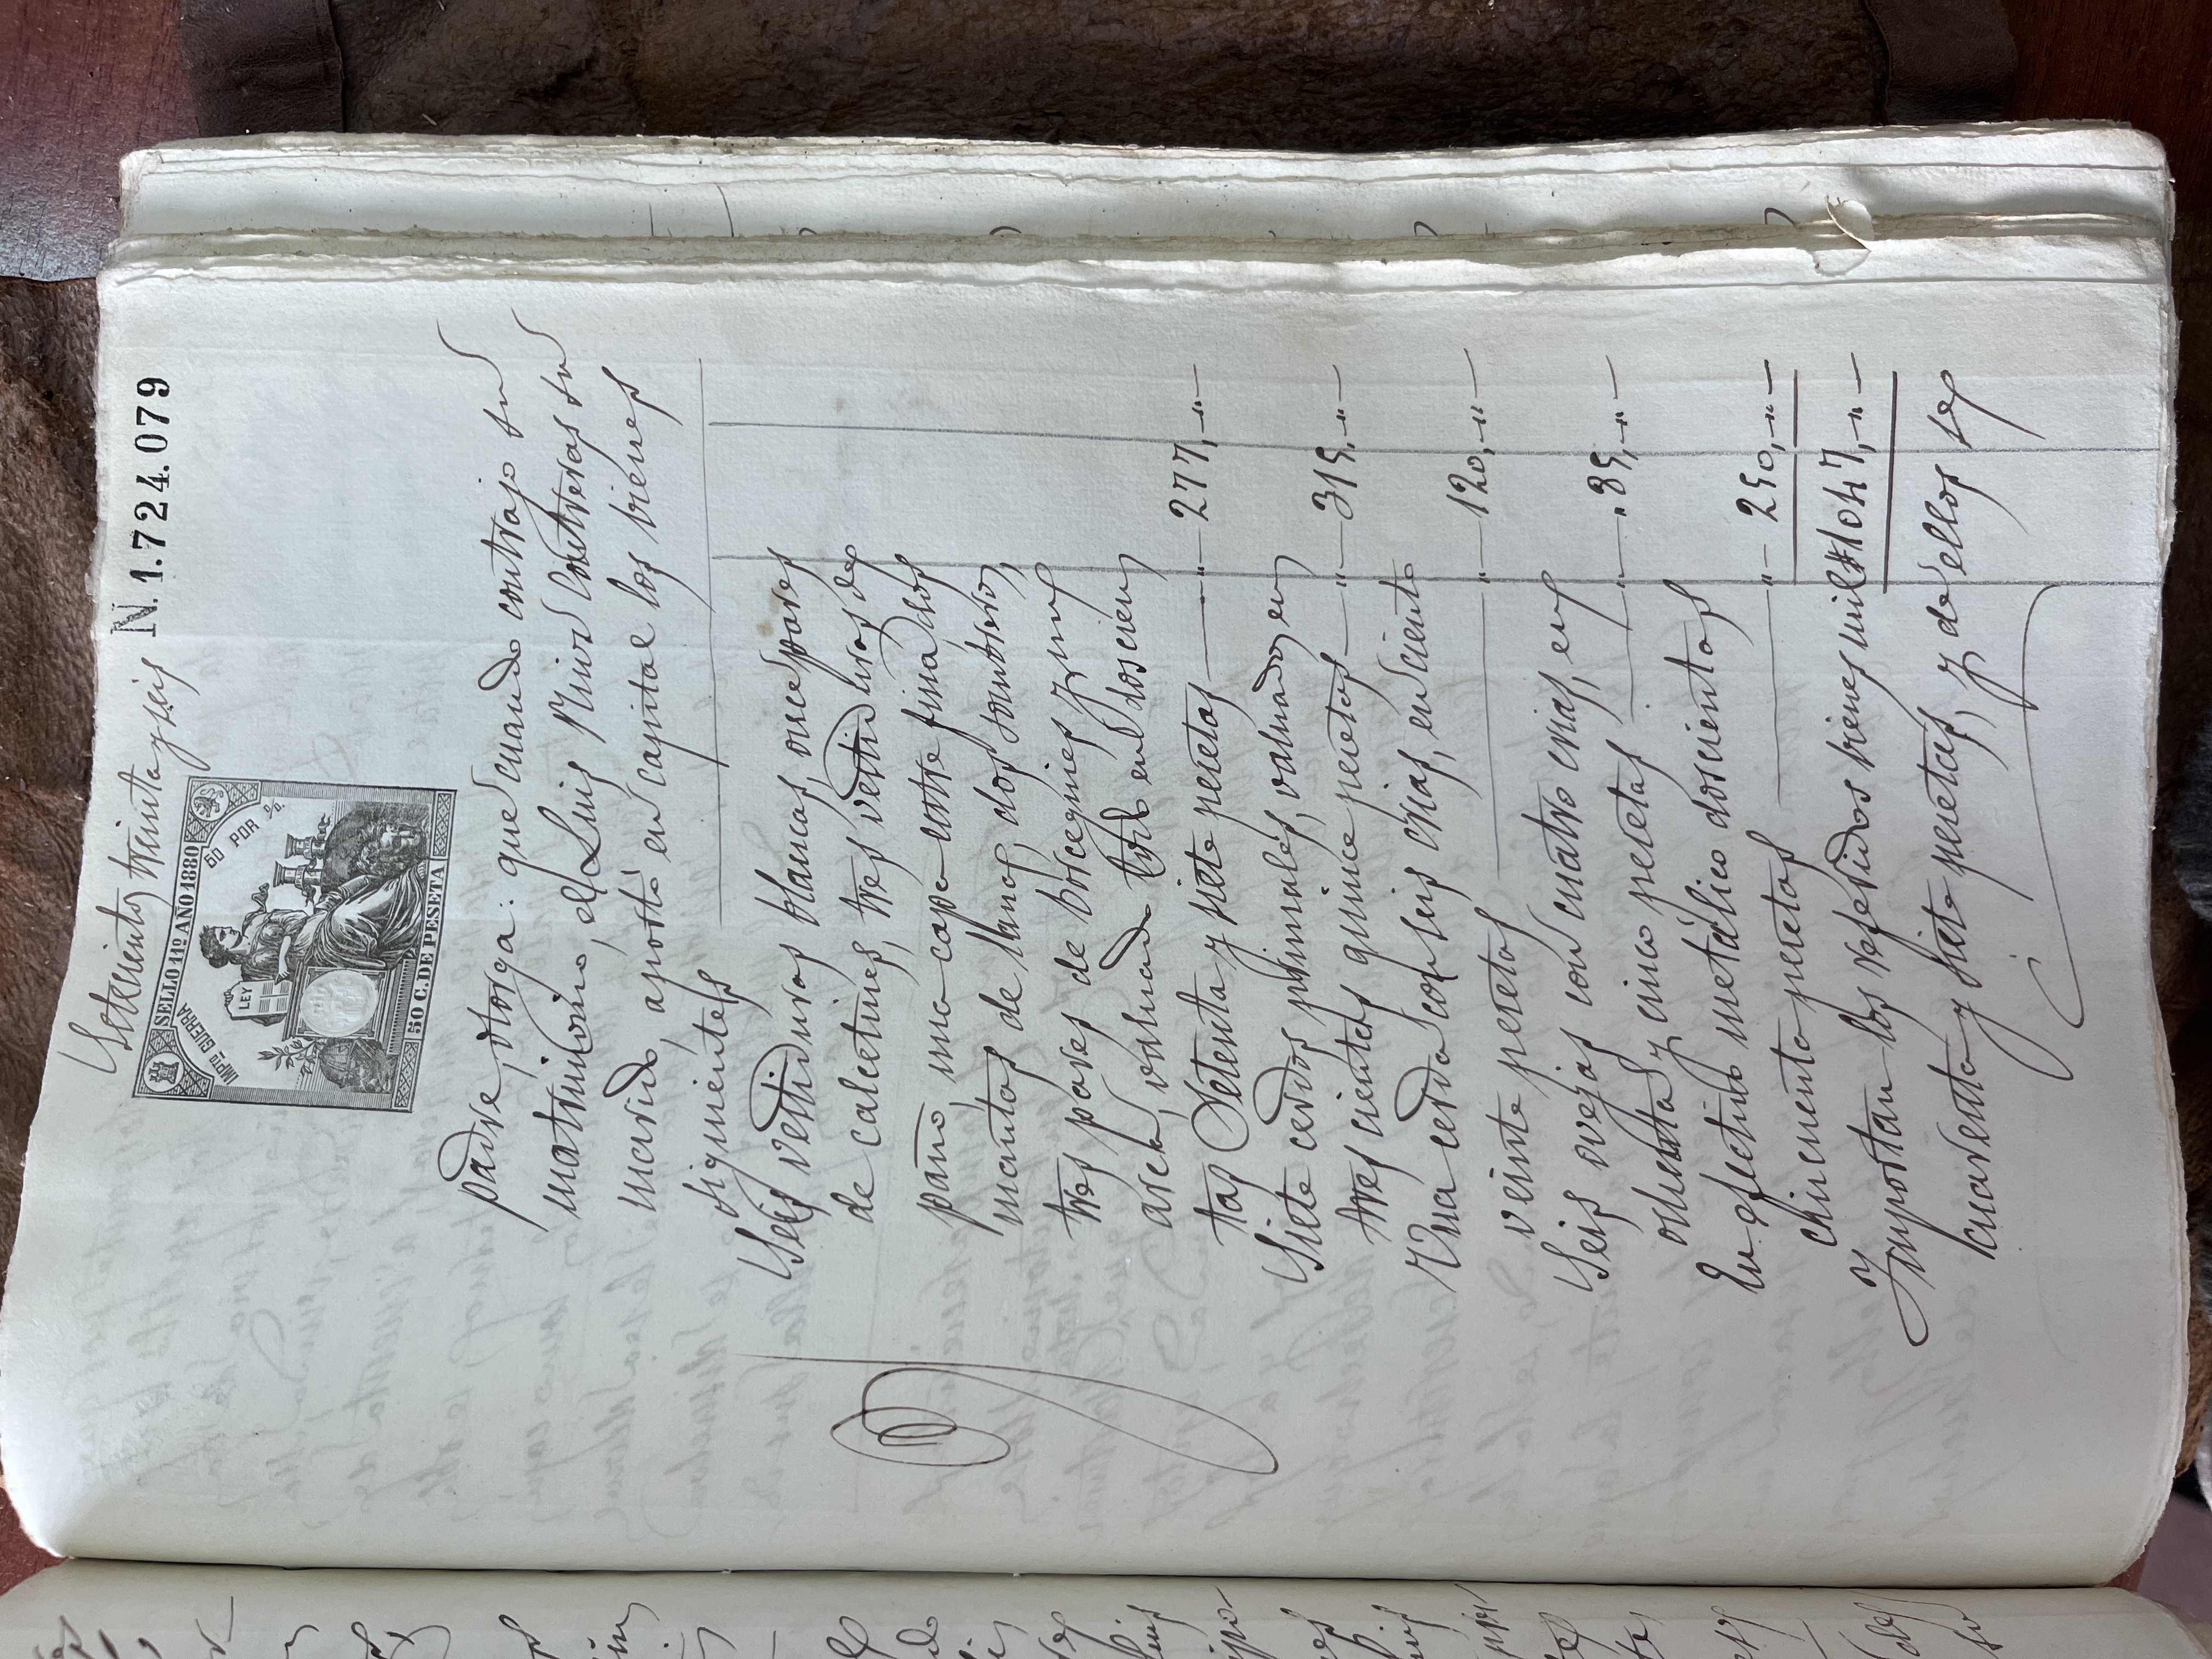 Setecientos treinta y seis N. 1.724.079
SELLO 11º AÑO 1880
IMPTO GUERRA
50 POR %.
LEY
50 C. DE PESETA
padre, otorga: que cuando contrajo su
matrimonio, el Luis Contreras su
marido, aportó en capital los bienes
siguientes
Seis vestiduras blancas, once pares
de calcetines, tres vestiduras de
paño, una capa entre fina, dos
mantas de lana, dos sombreros,
tres pares de borceguies y un
arca, valuado todo en doscien
tas setenta y siete pesetas " 277, "
Siete cerdos primales, valuados en
trescientas quince pesetas " 315, "
Una cerda con seis crias, en ciento
veinte pesetas " 120, "
Seis ovejas con cuatro crias, en
ochenta y cinco pesetas " 85, "
En efectivo metálico doscientas
cincuenta pesetas " 250, "
Importan los referidos bienes mil 1047, "
cuarenta y siete pesetas, y de ellos se